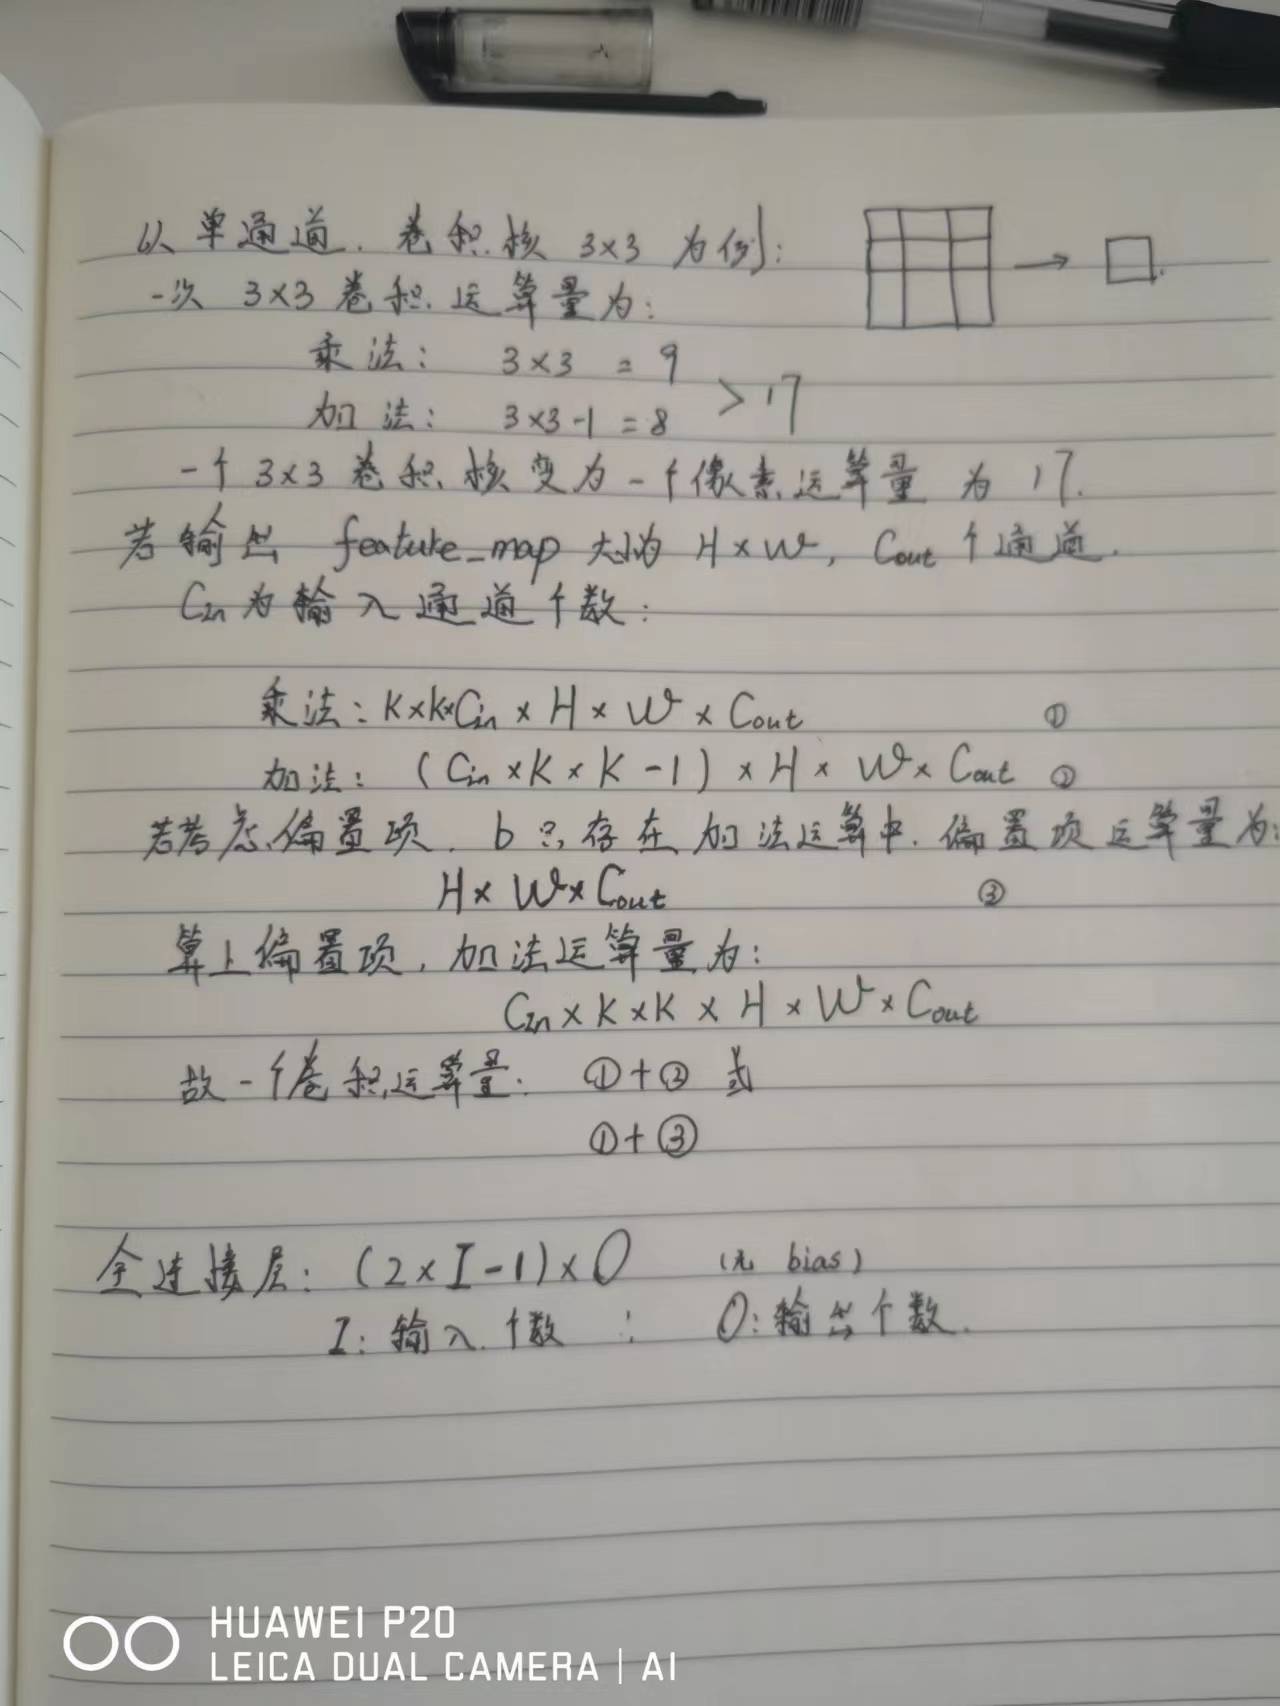 以单通道，卷积核 3×3 为例：
一次 3×3 卷积运算量为：
乘法： 3×3 = 9
加法： 3×3-1 = 8 > 17
一个 3×3 卷积核变为一个像素运算量 为 17.
若输出 feature_map 大小为 H×W, Cout 个通道.
Cin 为输入通道个数：
乘法：K×K×Cin × H × W × Cout ①
加法： (Cin × K × K - 1) × H × W × Cout ②
若考虑偏置项， b只存在加法运算中. 偏置项运算量为：
H× W×Cout ③
算上偏置项，加法运算量为：
Cin × K × K × H × W × Cout
故一个卷积运算量： ①+② 或
①+③
全连接层： (2×I-1)×O (无 bias)
I：输入个数 ； O：输出个数.
HUAWEI P20
LEICA DUAL CAMERA | AI